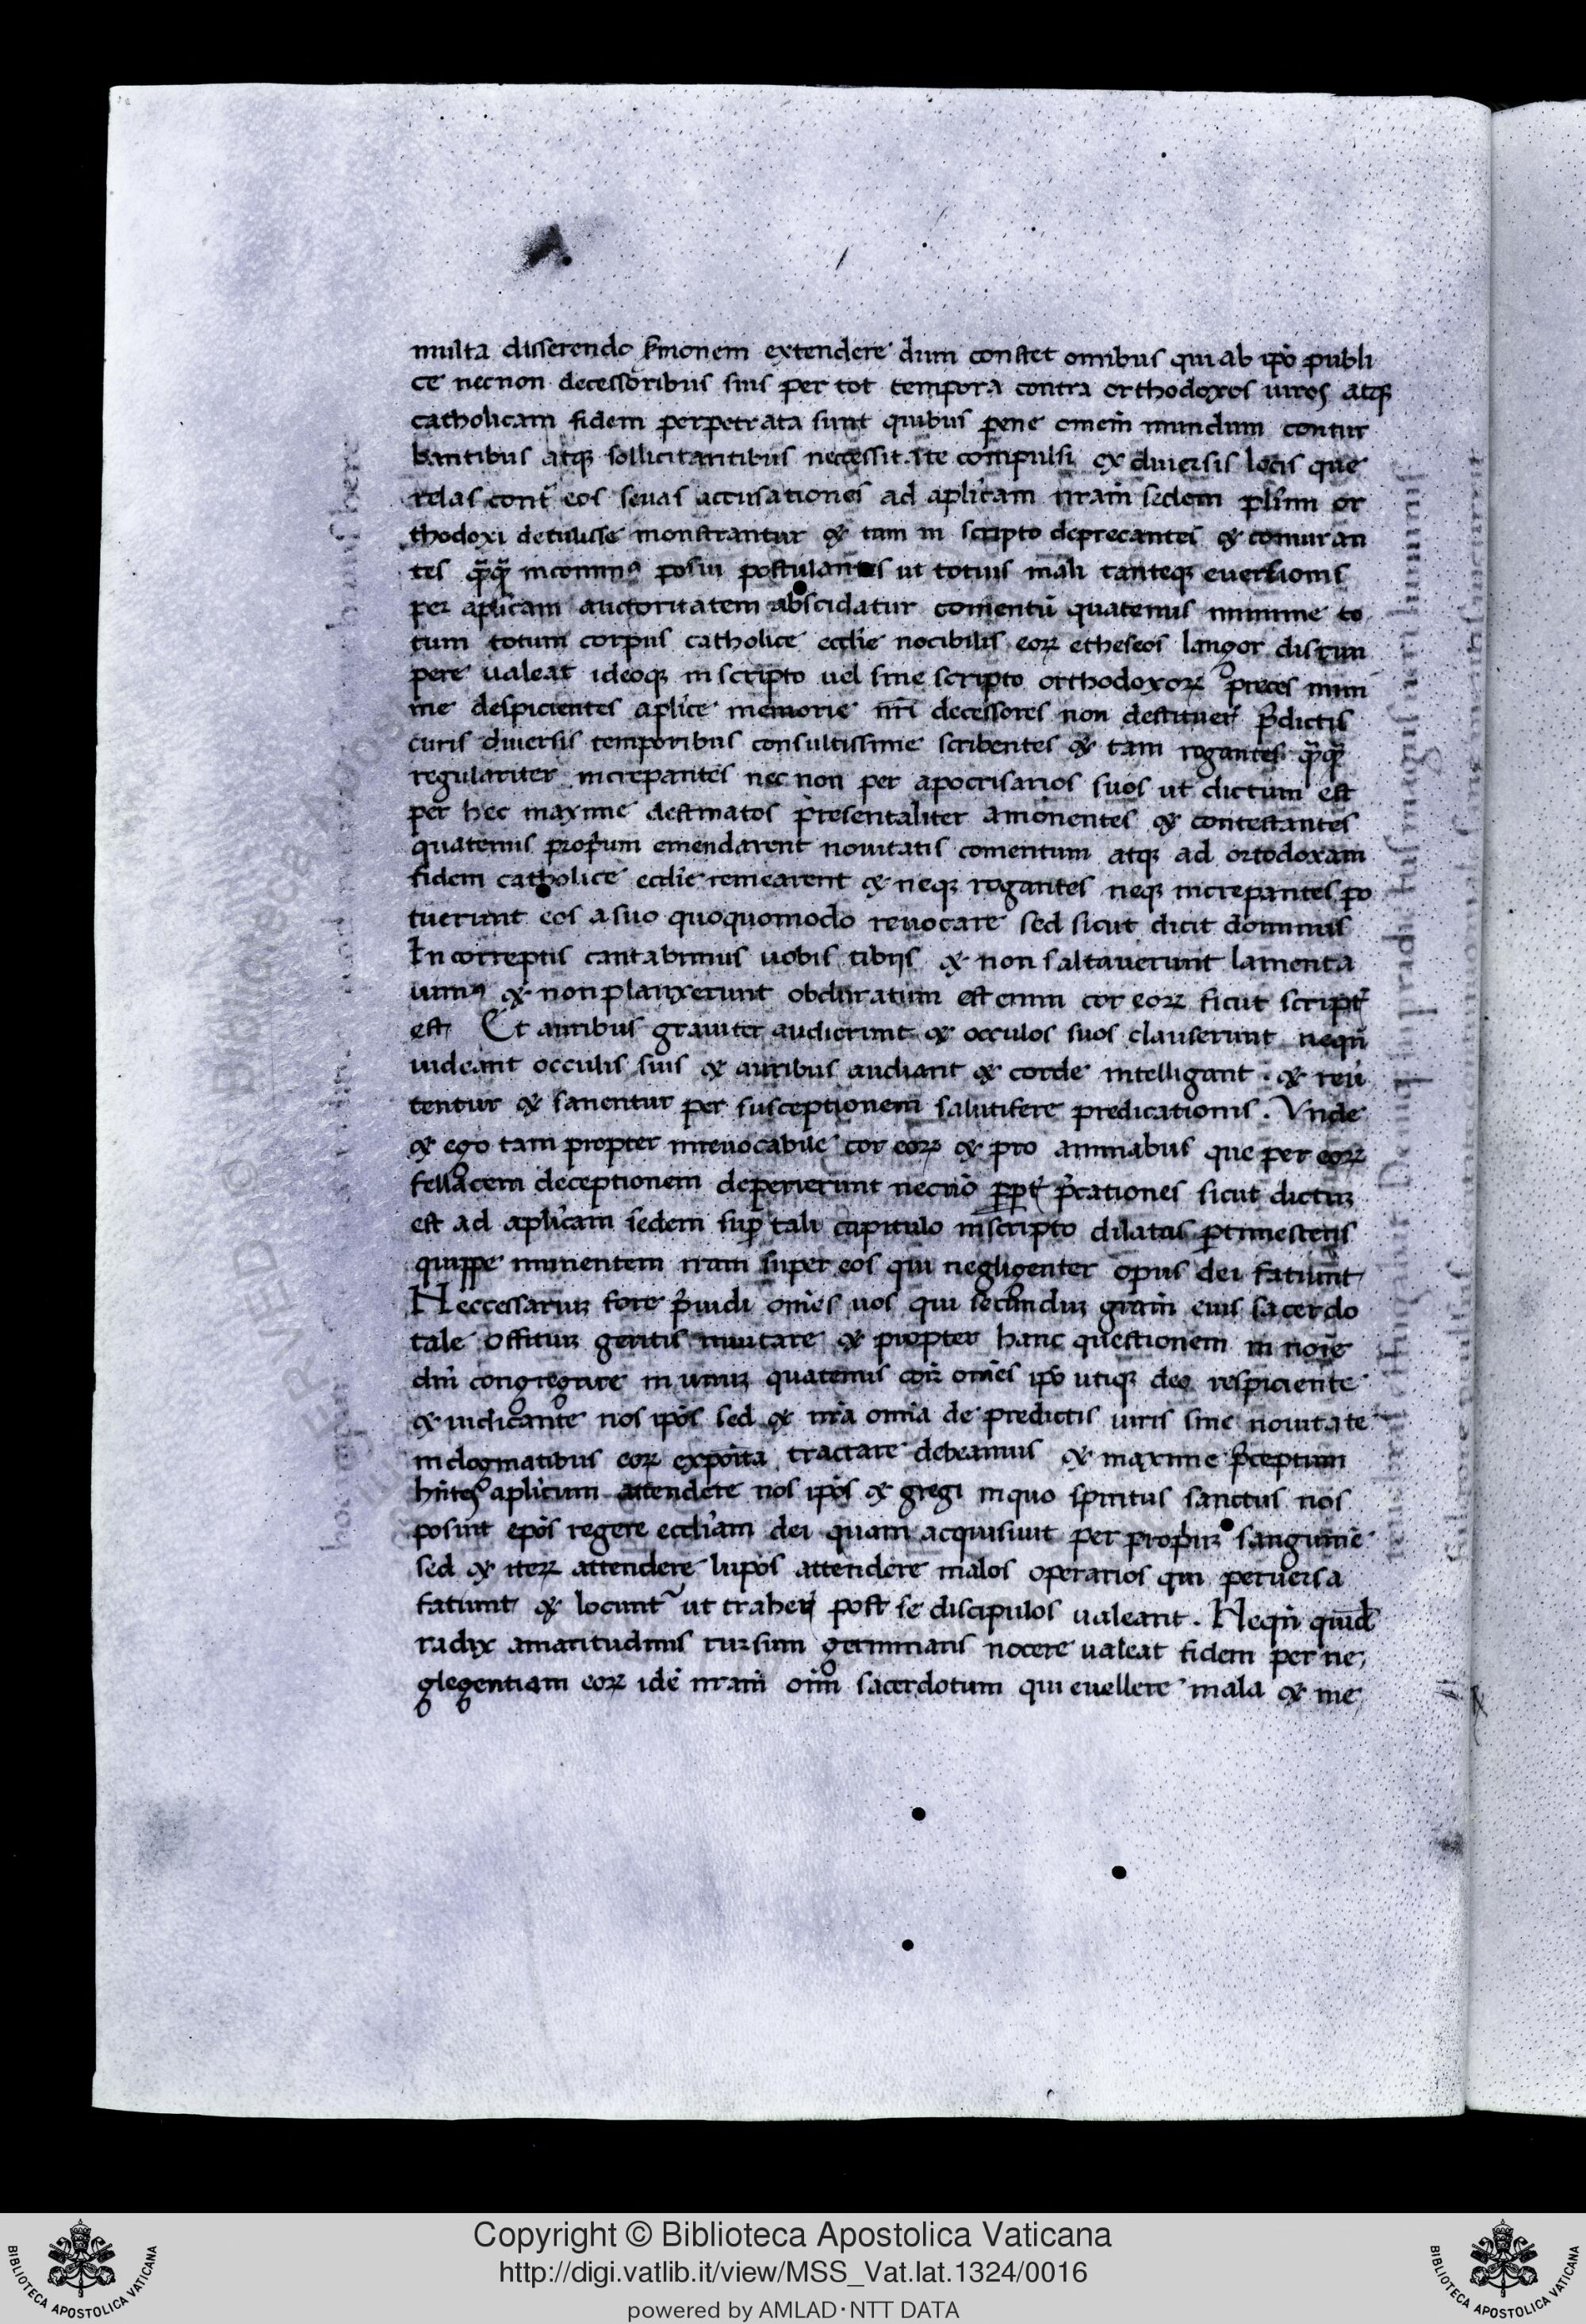 multa disserendo sꝑmonem extendere dum constet omnibus qui ab ip̄o publi
ce necnon decessoribus suis per tot tempora contra orthodoxos uiros atqꝫ
catholicam fidem perpetrata sunt quibus pene omem̄ mundum contur
bantibus atqꝫ sollicitantibus neccessitate compulsi ex diuersis locis que
relas cont̄ eos seuas accusationes ad aplicam nram̄ sedem plimi or
thodoxi detulisse monstrantur & tam in scripto deprecantes & coniuran
tes q̄mq̄ postulantes ut totius mali tanteqꝫ euersionis
per aplicam auctoritatem abscidatur comentū quatenus minime to
tum totum corpus catholice ecclie nocibilis eoꝝ etheseos langor disrum
pere ualeat ideoqꝫ in scripto uel sine scripto orthodoxoꝝ preces mini
me despicientes aplice memorie nr̄i decessores non destituer̄ p̄dictis
curis diuersis temporibus consultissime scribentes & tam rogantes q̄mq̄
regulariter increpantes nec non per apocrisarios suos ut dictum est
per hec maxime destinatos presentaliter amonentes & contestantes
quatenus proprium emendarent nouitatis comentum atqꝫ ad ortodoxam
fidem catholice ecclie remearent & neqꝫ rogantes neqꝫ increpantes po
tuerunt eos a suo quoquomodo reuocare sed sicut dicit dominus
In correptis cantabimus uobis tibijs & non saltauerunt lamenta
uimꝰ & non planxerunt obduratum est enim cor eoꝝ sicut script̄
est Et auribus grauiter audierunt & occulos suos clauserunt neqn̄
uideant occulis suis & auribus audiant & corde intelligant . & reū
tentur & sanentur per susceptionem salutifere predicationis . Vnde
& ego tam propter inreuocabile cor eoꝝ & pro animabus que per eoꝝ
fellacem deceptionem deperierunt necnō ꝓpt̄ p̄cationes sicut dictuꝫ
est ad aplicam sedem suꝑ tali capitulo in scripto dilatas ꝑtimescens
quippe iminentem iram super eos qui negligenter opus dei fatiunt
Neccessariuꝫ fore p̄uidi omes uos qui secunduꝫ gram̄ eius sacerdo
tale offituꝫ geritis inuitare & propter hanc questionem in noīe
dni congregare in unuꝫ quatenus com̄ omes ip̄o utiqꝫ deo respiciente
& iudicante nos ip̄os sed & nr̄a omia de predictis uiris sine nouitate
in dogmatibus eoꝝ expoīta tractare debeamus & maxime p̄ceptum
hn̄tes aplicum attendere nos ip̄os & gregi in quo spiritus sanctus nos
posuit ep̄os regere eccliam dei quam acquisiuit per propriuꝫ sanguinē
sed & iteꝝ attendere lupos attendere malos operarios qui peruersa
fatiunt & locunt̄ ut traher̄ post se discipulos ualeant . Neqn̄ quid̄
radix amaritudinis rursum germinans nocere ualeat fidem per ne
glegentiam eoꝝ idē nram̄ oim̄ sacerdotum qui euellere mala & me
Copyright © Biblioteca Apostolica Vaticana
http://digi.vatlib.it/view/MSS_Vat.lat.1324/0016
powered by AMLAD·NTT DATA
BIBLIOTECA APOSTOLICA VATICANA
BIBLIOTECA APOSTOLICA VATICANA